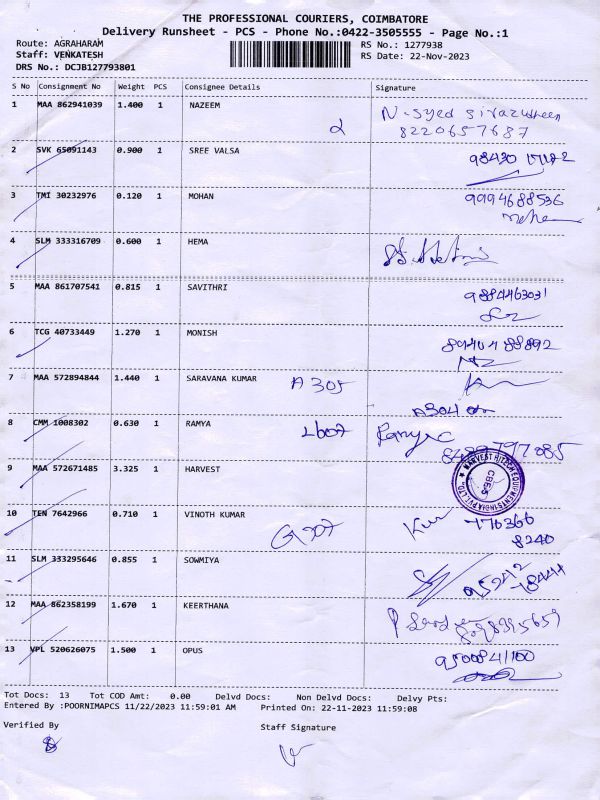 THE PROFESSIONAL COURIERS, COIMBATORE
Delivery Runsheet - PCS - Phone No.:0422-3505555 - Page No.:1
Route: AGRAHARAM RS No.: 1277938
Staff: VENKATESH RS Date: 22-Nov-2023
DRS No.: DCJB127793801
S No Consignment No Weight PCS Consignee Details Signature
1 MAA 862941039 1.400 1 NAZEEM
8220657687
2 SVK 65091143 0.900 1 SREE VALSA
3 TMI 30232976 0.120 1 MOHAN 9994688536
4 SLM 333316709 0.600 1 HEMA
5 MAA 861707541 0.815 1 SAVITHRI 9884463031
6 TCG 40733449 1.270 1 MONISH
7 MAA 572894844 1.440 1 SARAVANA KUMAR A 305
A304
8 CMM 1008302 0.630 1 RAMYA L607 Ramya
8489797085
9 MAA 572671485 3.325 1 HARVEST
10 TEN 7642966 0.710 1 VINOTH KUMAR G307 776366
8240
11 SLM 333295646 0.855 1 SOWMIYA
12 MAA 862358199 1.670 1 KEERTHANA
13 VPL 520626075 1.500 1 OPUS 9500841100
Tot Docs: 13 Tot COD Amt: 0.00 Delvd Docs: Non Delvd Docs: Delvy Pts:
Entered By :POORNIMAPCS 11/22/2023 11:59:01 AM Printed On: 22-11-2023 11:59:08
Verified By Staff Signature